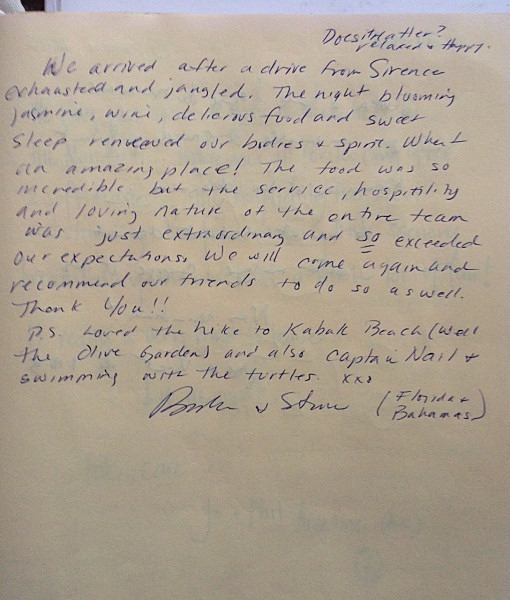 Does it matter?
relaxed & Happy.
We arrived after a drive from Sirence
exhausted and jangled. The night blooming
jasmine, wine, delicious food and sweet
sleep renewed our bodies & spirit. What
an amazing place! The food was so
incredible but the service, hospitility
and loving nature of the entire team
was just extraordinary and so exceeded
our expectations. We will come again and
recommend our friends to do so as well.
Thank You!!
P.S. Loved the hike to Kabak Beach (
the Olive Gardens and also Captain &
swimming with the turtles. xxo
& (Florida &
Bahamas)